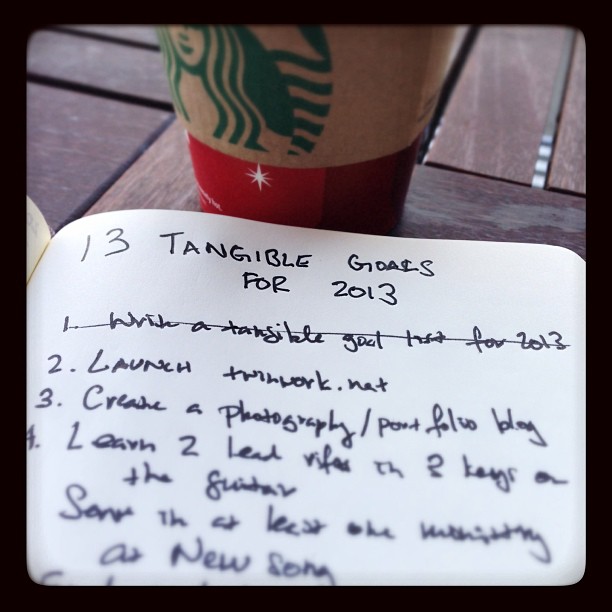 13 TANGIBLE GOALS
FOR 2013
1. Write a tangible goal list for 2013
2. LAUNCH twinwork.net
3. Create a photography/portfolio blog
4. Learn 2 lead rifes in 3 keys on
the guitar
Serve in at least one ministry
at New Song